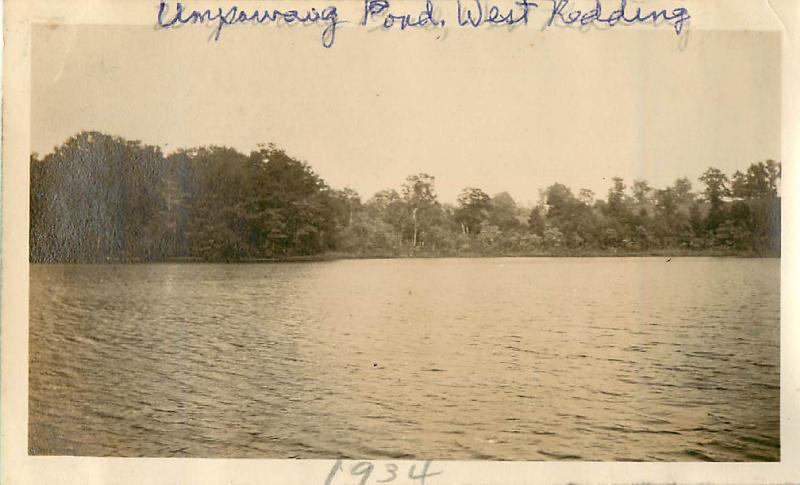 Umpawaug Pond, West Redding
1934